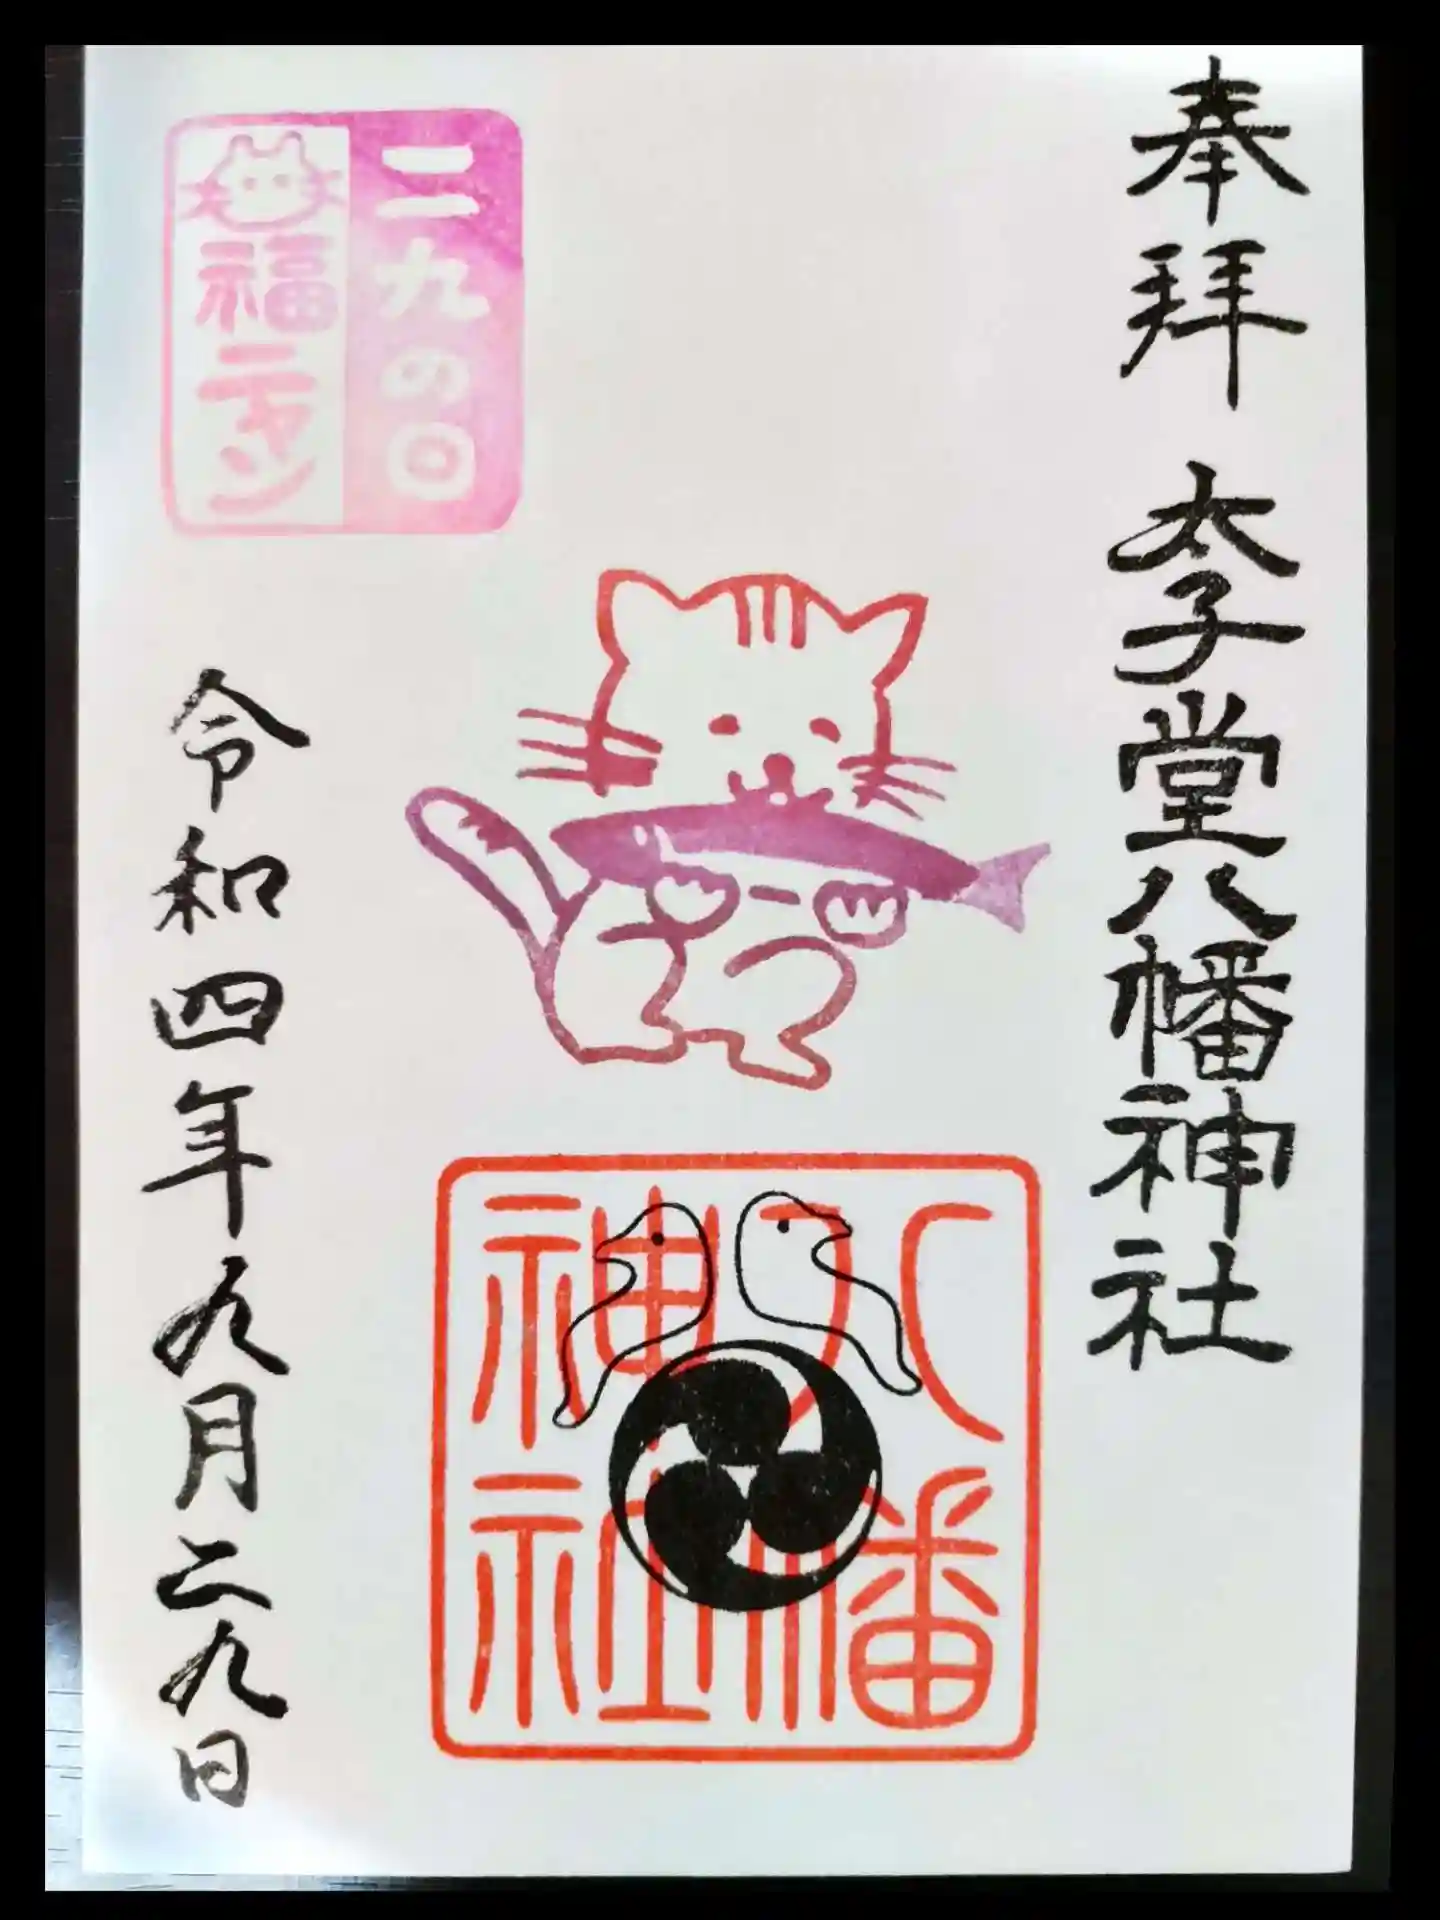 奉拝 太子堂八幡神社
二九の日
福ニャン
八幡
神社
令和四年九月二九日